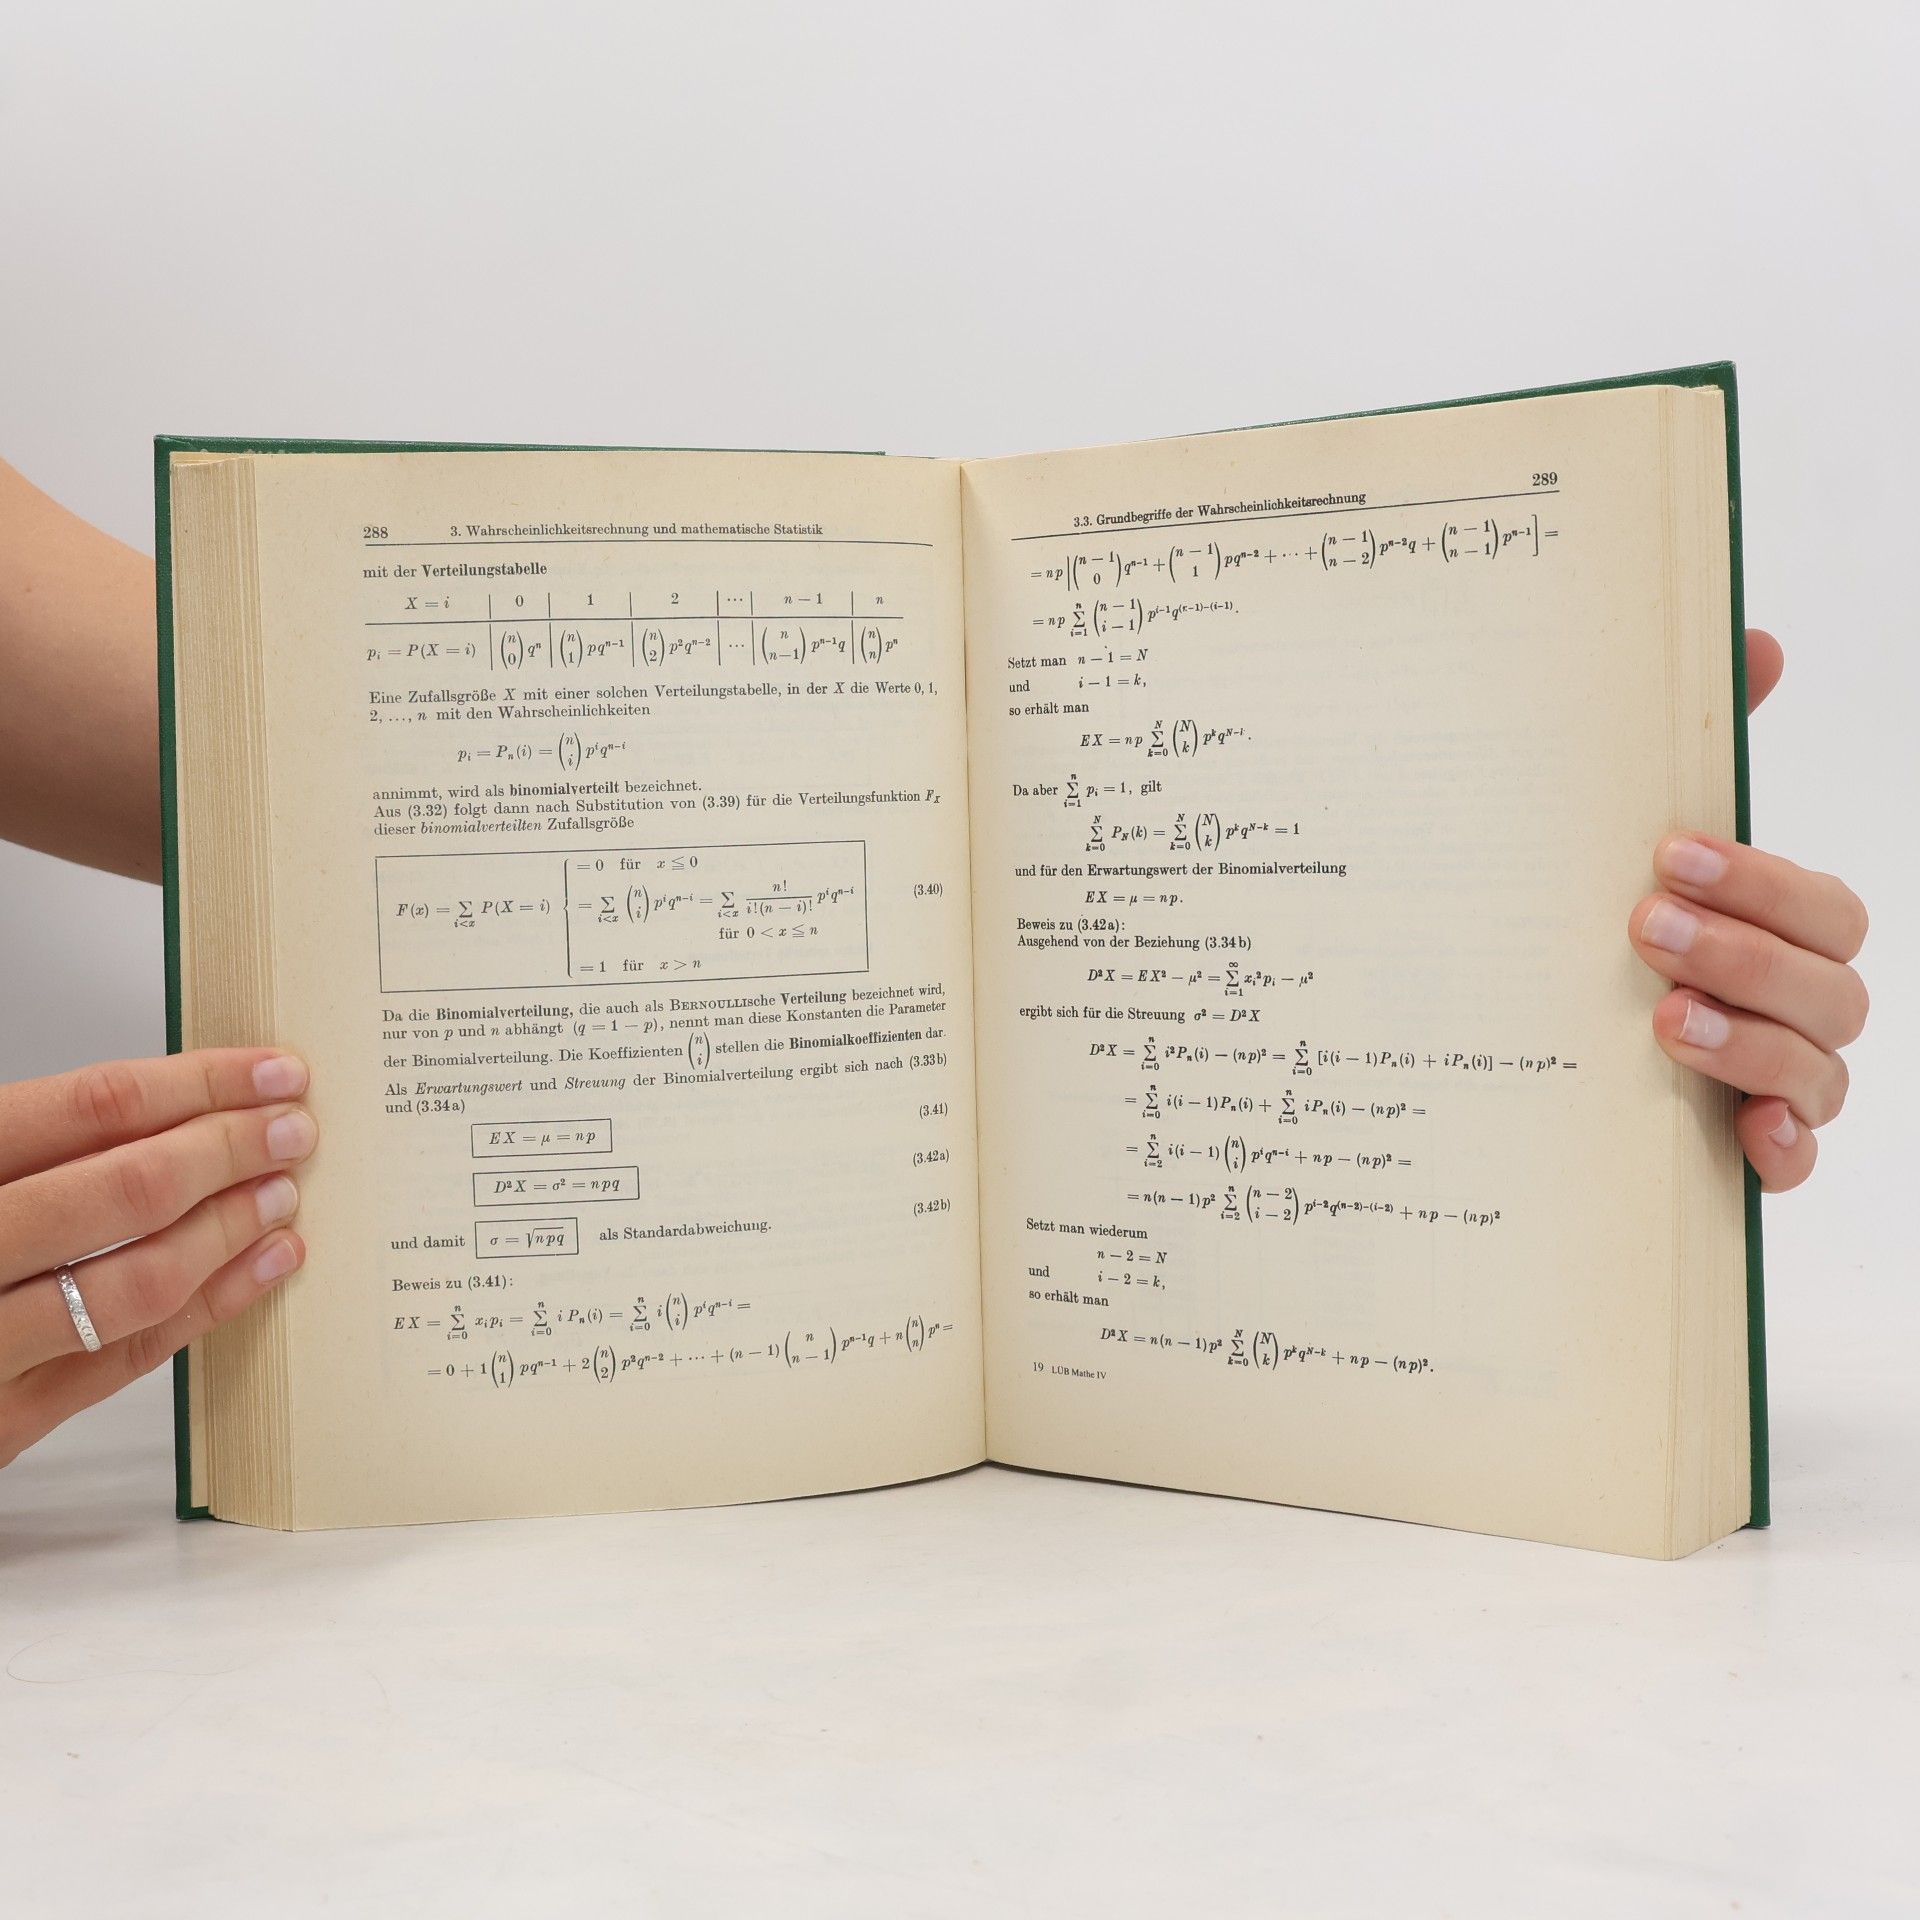 288 3. Wahrscheinlichkeitsrechnung und mathematische Statistik
mit der Verteilungstabelle
X = i | 0 | 1 | 2 | ⋯ | n − 1 | n
pᵢ = P(X = i) | (n über 0) qⁿ | (n über 1) pqⁿ⁻¹ | (n über 2) p²qⁿ⁻² | ⋯ | (n über n−1) pⁿ⁻¹q | (n über n) pⁿ
Eine Zufallsgröße X mit einer solchen Verteilungstabelle, in der X die Werte 0, 1,
2, …, n mit den Wahrscheinlichkeiten
pᵢ = Pₙ(i) = (n über i) pⁱqⁿ⁻ⁱ
annimmt, wird als binomialverteilt bezeichnet.
Aus (3.32) folgt dann nach Substitution von (3.39) für die Verteilungsfunktion F_X
dieser binomialverteilten Zufallsgröße
= 0 für x ≦ 0
F(x) = ∑_{i<x} P(X = i) { = ∑_{i<x} (n über i) pⁱqⁿ⁻ⁱ = ∑_{i<x} n!/(i!(n − i)!) pⁱqⁿ⁻ⁱ (3.40)
für 0 < x ≦ n
= 1 für x > n
Da die Binomialverteilung, die auch als BERNOULLIsche Verteilung bezeichnet wird,
nur von p und n abhängt (q = 1 − p), nennt man diese Konstanten die Parameter
der Binomialverteilung. Die Koeffizienten (n über i) stellen die Binomialkoeffizienten dar.
Als Erwartungswert und Streuung der Binomialverteilung ergibt sich nach (3.33b)
und (3.34a)
EX = μ = np (3.41)
D²X = σ² = npq (3.42a)
und damit σ = √npq als Standardabweichung. (3.42b)
Beweis zu (3.41):
EX = ∑_{i=0}^{n} xᵢpᵢ = ∑_{i=0}^{n} i Pₙ(i) = ∑_{i=0}^{n} i (n über i) pⁱqⁿ⁻ⁱ =
= 0 + 1 (n über 1) pqⁿ⁻¹ + 2 (n über 2) p²qⁿ⁻² + ⋯ + (n − 1) (n über n − 1) pⁿ⁻¹q + n (n über n) pⁿ =
3.3. Grundbegriffe der Wahrscheinlichkeitsrechnung 289
= np [(n − 1 über 0) qⁿ⁻¹ + (n − 1 über 1) pqⁿ⁻² + ⋯ + (n − 1 über n − 2) pⁿ⁻²q + (n − 1 über n − 1) pⁿ⁻¹] =
= np ∑_{i=1}^{n} (n − 1 über i − 1) pⁱ⁻¹q⁽ⁿ⁻¹⁾⁻⁽ⁱ⁻¹⁾.
Setzt man n − 1 = N
und i − 1 = k,
so erhält man
EX = np ∑_{k=0}^{N} (N über k) pᵏq^{N−k}.
Da aber ∑_{i=1}^{n} pᵢ = 1, gilt
∑_{k=0}^{N} P_N(k) = ∑_{k=0}^{N} (N über k) pᵏq^{N−k} = 1
und für den Erwartungswert der Binomialverteilung
EX = μ = np.
Beweis zu (3.42a):
Ausgehend von der Beziehung (3.34b)
D²X = EX² − μ² = ∑_{i=1}^{∞} xᵢ²pᵢ − μ²
ergibt sich für die Streuung σ² = D²X
D²X = ∑_{i=0}^{n} i²Pₙ(i) − (np)² = ∑_{i=0}^{n} [i(i − 1)Pₙ(i) + iPₙ(i)] − (np)² =
= ∑_{i=0}^{n} i(i − 1)Pₙ(i) + ∑_{i=0}^{n} iPₙ(i) − (np)² =
= ∑_{i=2}^{n} i(i − 1) (n über i) pⁱqⁿ⁻ⁱ + np − (np)² =
= n(n − 1)p² ∑_{i=2}^{n} (n − 2 über i − 2) pⁱ⁻²q⁽ⁿ⁻²⁾⁻⁽ⁱ⁻²⁾ + np − (np)²
Setzt man wiederum
n − 2 = N
und i − 2 = k,
so erhält man
D²X = n(n − 1)p² ∑_{k=0}^{N} (N über k) pᵏq^{N−k} + np − (np)².
19 LÜB Mathe IV